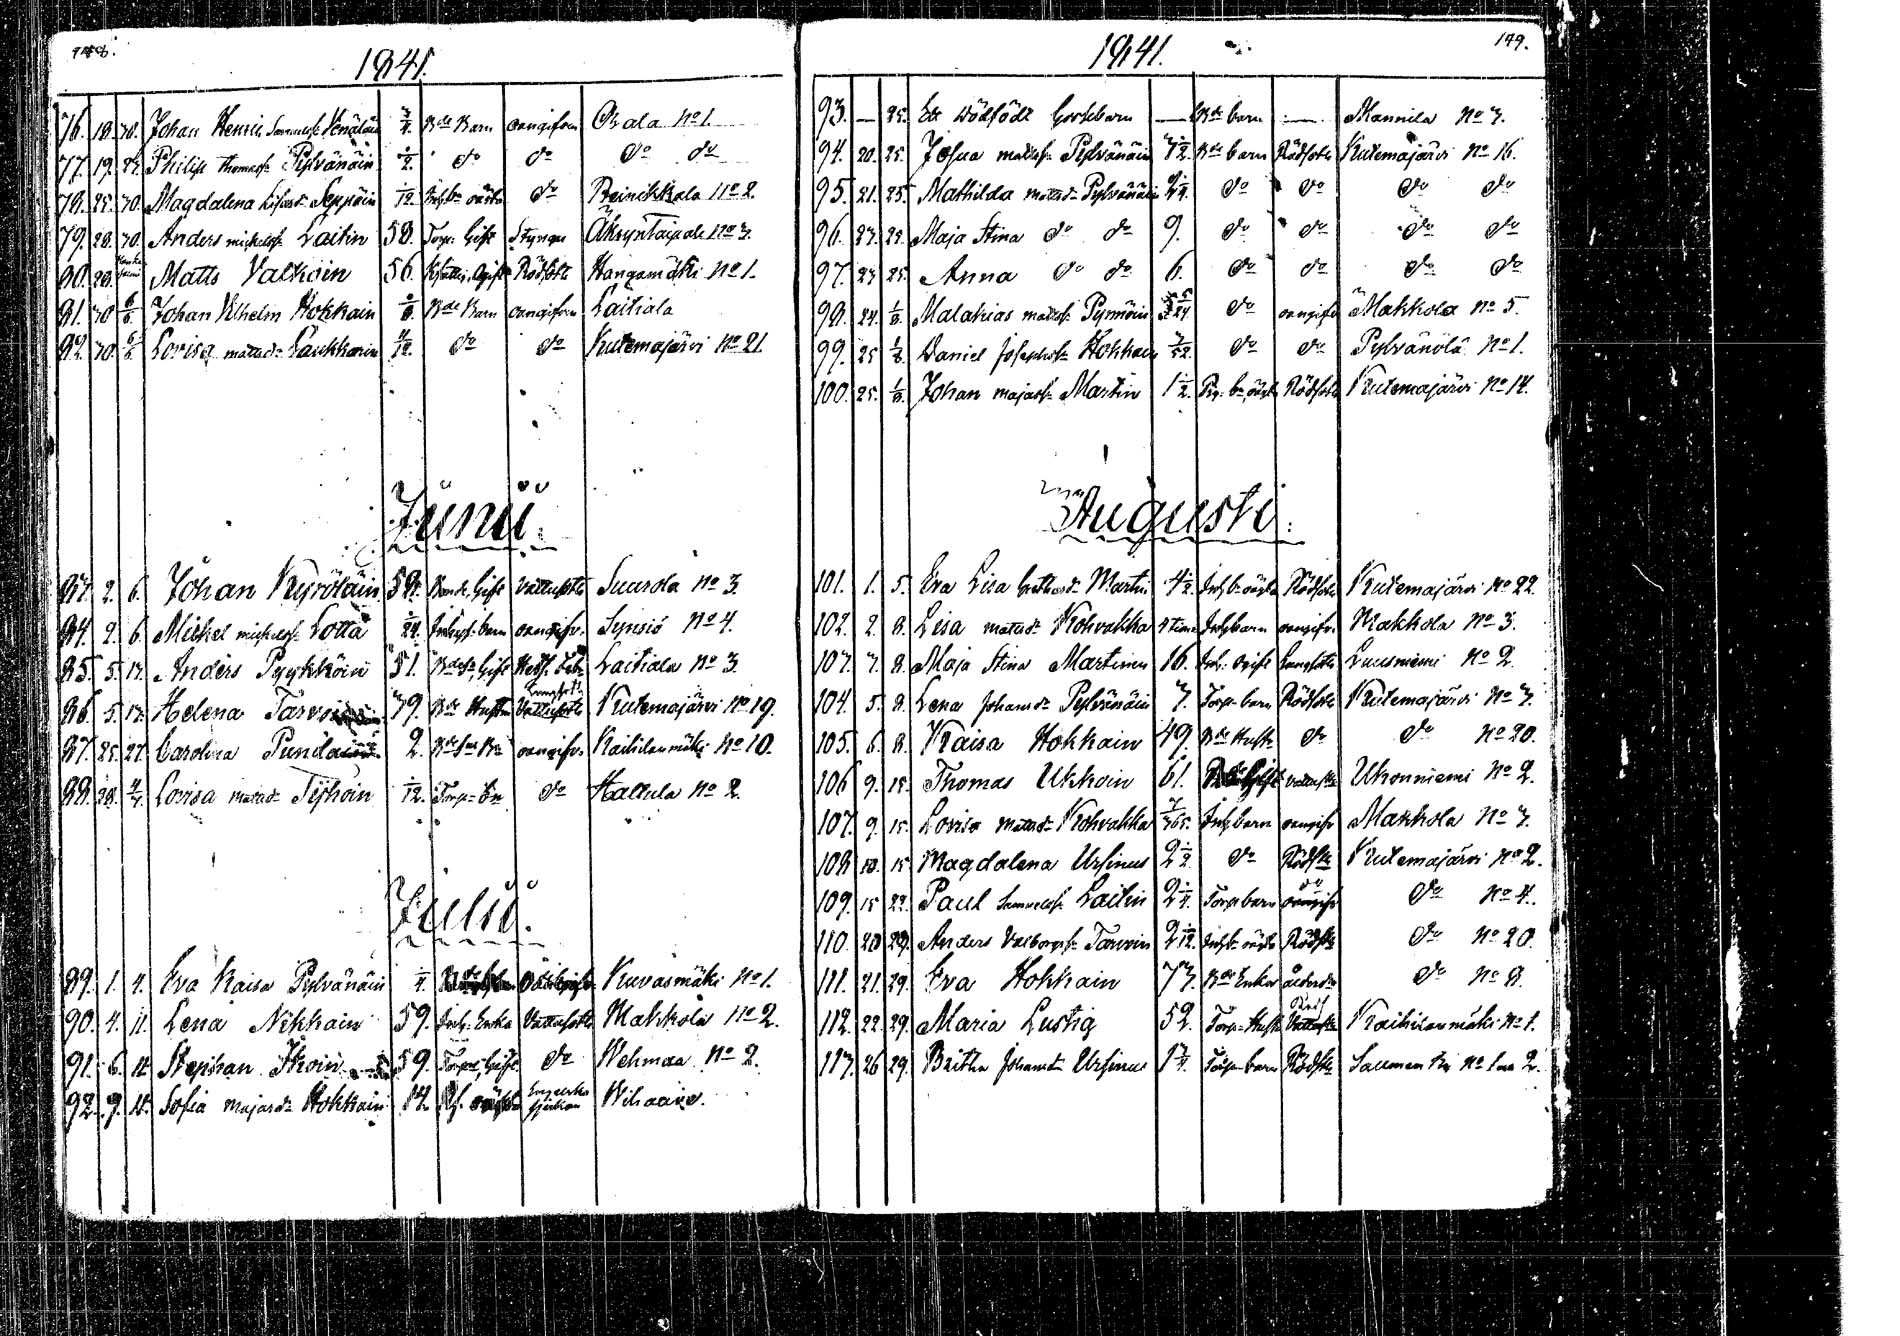 148.
1841.
76. 18. 30. Johan Henric Samuelss. Venäläin 3/4. Bde Barn oangifven Orala No 1.
77. 19. 27. Philip Thomass. Pylvänäin 1/2. do do do do
78. 25. 30. Magdalena Lisasdr Seppäin 1/12. Inhb. oäkta do Reinikkala No 2.
79. 28. 30. Anders Mickelss. Laitin 58. Torp. Gift Styng Äkryntaipale No 3.
80. 29. Matts Valkoin 56. Ogift Rödsot Hangamäki No 1.
81. 30 6/6. Johan Vlhelm Hokkain Bde Barn oangifven Laitiala
82. 30. 6/6. Lovisa Mattsdr Laukkanin /12. do do Kutemajärvi No 21.
Junii.
83. 2. 6. Johan Kyröläin 59. Bonde, Gift Vattusot Suurola No 3.
84. 2. 6. Mickel Mickelss. Lotta 1/24. Inhys. barn oangifv. Synsiö No 4.
85. 5. 13. Anders Pyykköin 51. Gift Laitiala No 3.
86. 5. 13. Helena Tarvain 39. Bde Hustru Lungsot Kutemajärvi No 19.
87. 25. 27. Carolina Punda 2. oangifv. Kaihilanmäki No 10.
88. 28. 4/7. Lovisa Mattsdr Tyhöin 1/12. Torp. bn do Hallula No 2.
Julii.
89. 1. 4. Eva Kaisa Pylvänäin 1/4. Kuvasmäki No 1.
90. 4. 11. Lena Nikkain 59. Inh. Enka Vattusot Makkola No 2.
91. 6. 11. Stephan Ikoin 59. Torpare, Gift do Wehmaa No 2.
92. 9. 18. Sofia Majasdr Hokkain 14. oäkta Engelska sjukan Wihaava.
149.
1841.
93. — 25. Ett Dödfödt Gossebarn — Bde barn — Mannila No 3.
94. 20. 25. Josua Mattss. Pylvänäin 3 1/2. Bde barn Rödsot Kutemajärvi No 16.
95. 21. 25. Mathilda Mattsdr Pylvänäin do do do do
96. 23. 25. Maja Stina do do 9. do do do do
97. 23 25. Anna do do 6. do do do do
98. 24. 1/8. Malakias Mattss. Pynnöin do oangifv Makkola No 5.
99. 25 1/8. Daniel Josephss. Hokkain 3/52. do do Pylvänölä No 1.
100. 25. 1/8. Johan Majass. Martin 1 1/2. oäkta Rödsot Kutemajärvi No 14.
Augusti.
101. 1. 5. Eva Lisa Martin 4 1/2. Inhb. oäkta Rödsot Kutemajärvi No 22.
102. 2. 8. Lisa Mattsdr Kohvakka 4 timar Inh. barn oangifv. Makkola No 3.
103. 3. 8. Maja Stina Martinen 16. Inh. Ogift Lungsot Luusniemi No 2.
104. 5. 8. Lena Johansdr Pylvänäin 3. Torp. barn Rödsot Kutemajärvi No 3.
105. 6. 8. Kaisa Hokkain 49. Bde Hust. do do No 20.
106 9. 15. Thomas Ukkoin 61. Gift Vattust. Ukonniemi No 2.
107. 9. 15. Lovisa Mattsdr Kohvakka 3/365. Inh. barn oangifv Makkola No 3.
108 10. 15 Magdalena Ursinus 2 1/2 do Rödst. Kutemajärvi No 2.
109. 15 22. Paul Samuelss. Laitin 2 1/4. Torp. barn do do No 4.
110. 20 29. Anders Valborgss. Tarvain 2 1/12. Inhb. oäkta Rödst. do No 20.
111. 21. 29. Eva Hokkain 73. Bde Enka ålderd. do No 8.
112. 22. 29. Maria Lustig 52. Torp. Hust. Röds Kaihilanmäki No 1.
113. 26 29. Britha Johansdr Ursinus 1 3/4. Torp. barn Rödst. No 1 2.